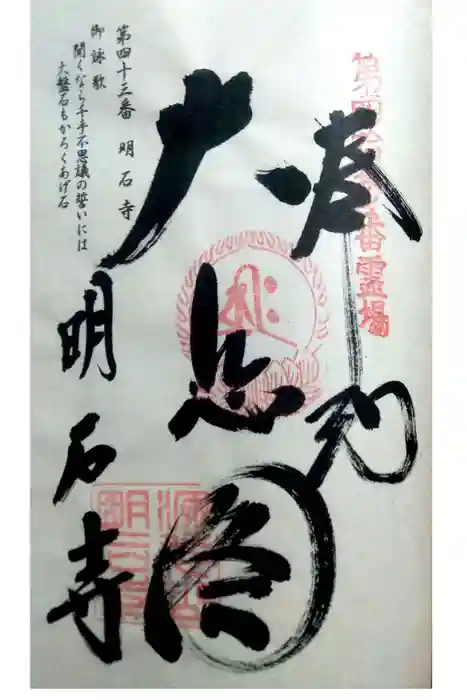 第四十三番霊場
奉
大悲閣
明石寺
第四十三番 明石寺
御詠歌
聞くならく千手不思議の誓いには
大盤石もかろくあげ石